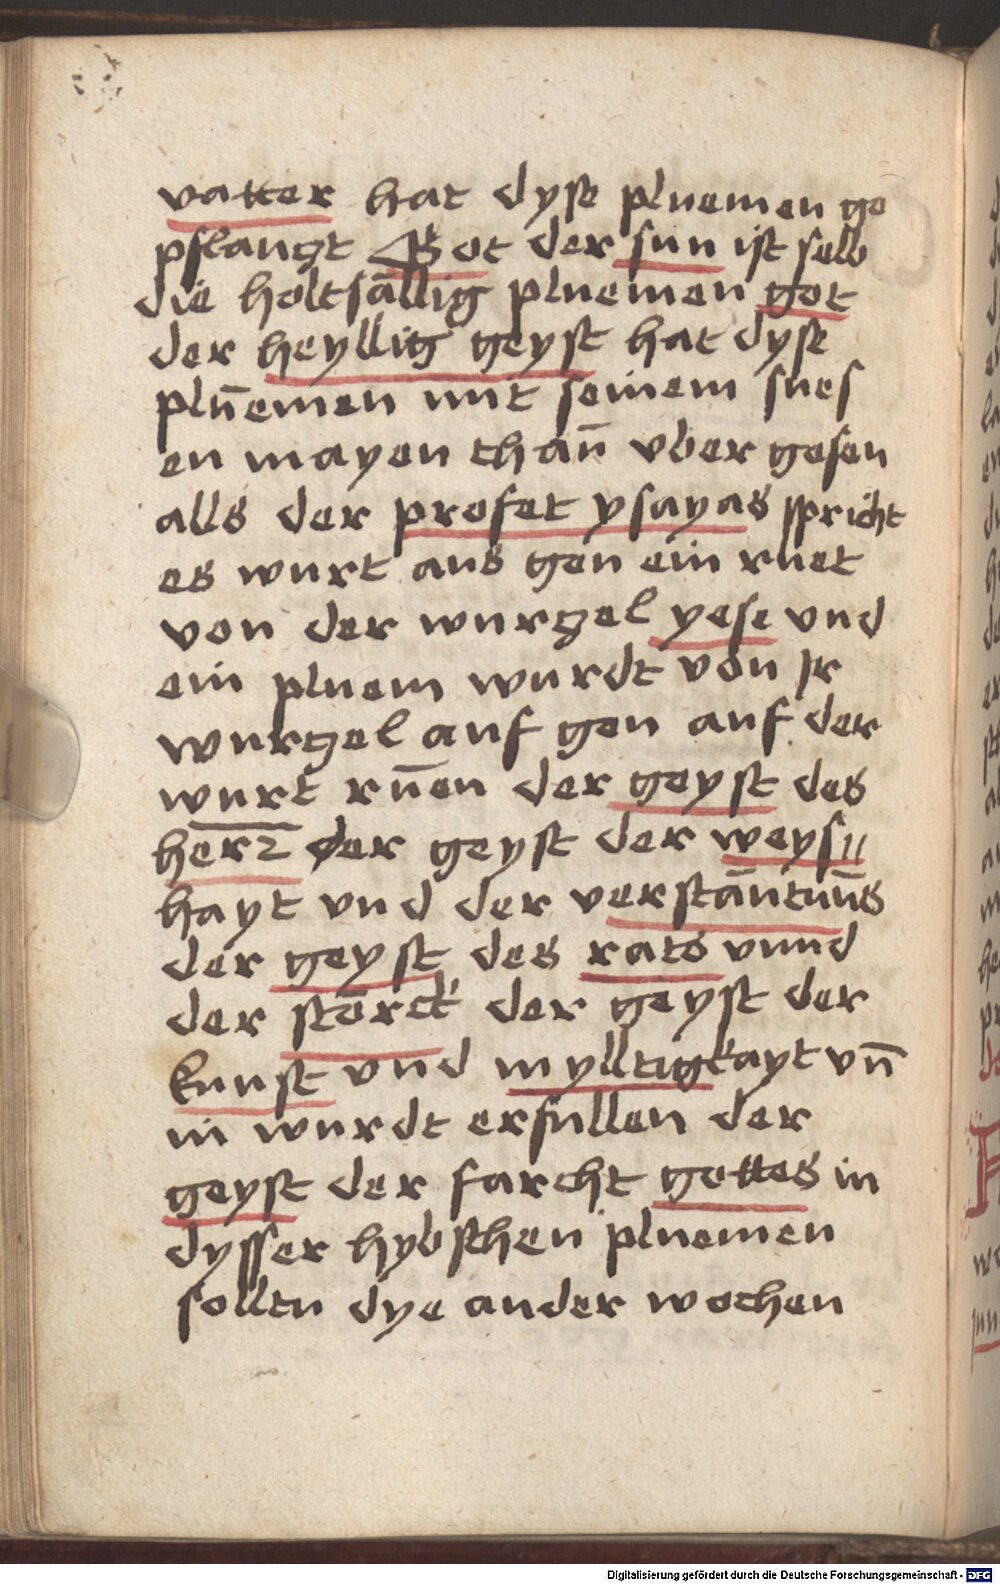 vatter hat dyse pluemen ge
pflanzt Got der sun ist selb
die holtsällig pluemen got
der heyllig geyst hat dyse
plūemen mit seinem sues
en mayen thaū vber gosen
alls der profet ysayas spricht
es wurt aus gen ein ruet
von der wurzel yese vnd
ein pluem wurdt von Ir
wurzel auf gen auf der
wurt rūen der geyst des
herrz der geyst der weys〃
hayt vnd der verstāntnūs
der geyst des rats vnnd
der störck der geyst der
kunst vnd mylltigkayt vn̄
in wurdt erfullen der
geyst der farcht gottes in
dysser hybschen pluemen
solltu dye ander wochen
Digitalisierung gefördert durch die Deutsche Forschungsgemeinschaft - DFG